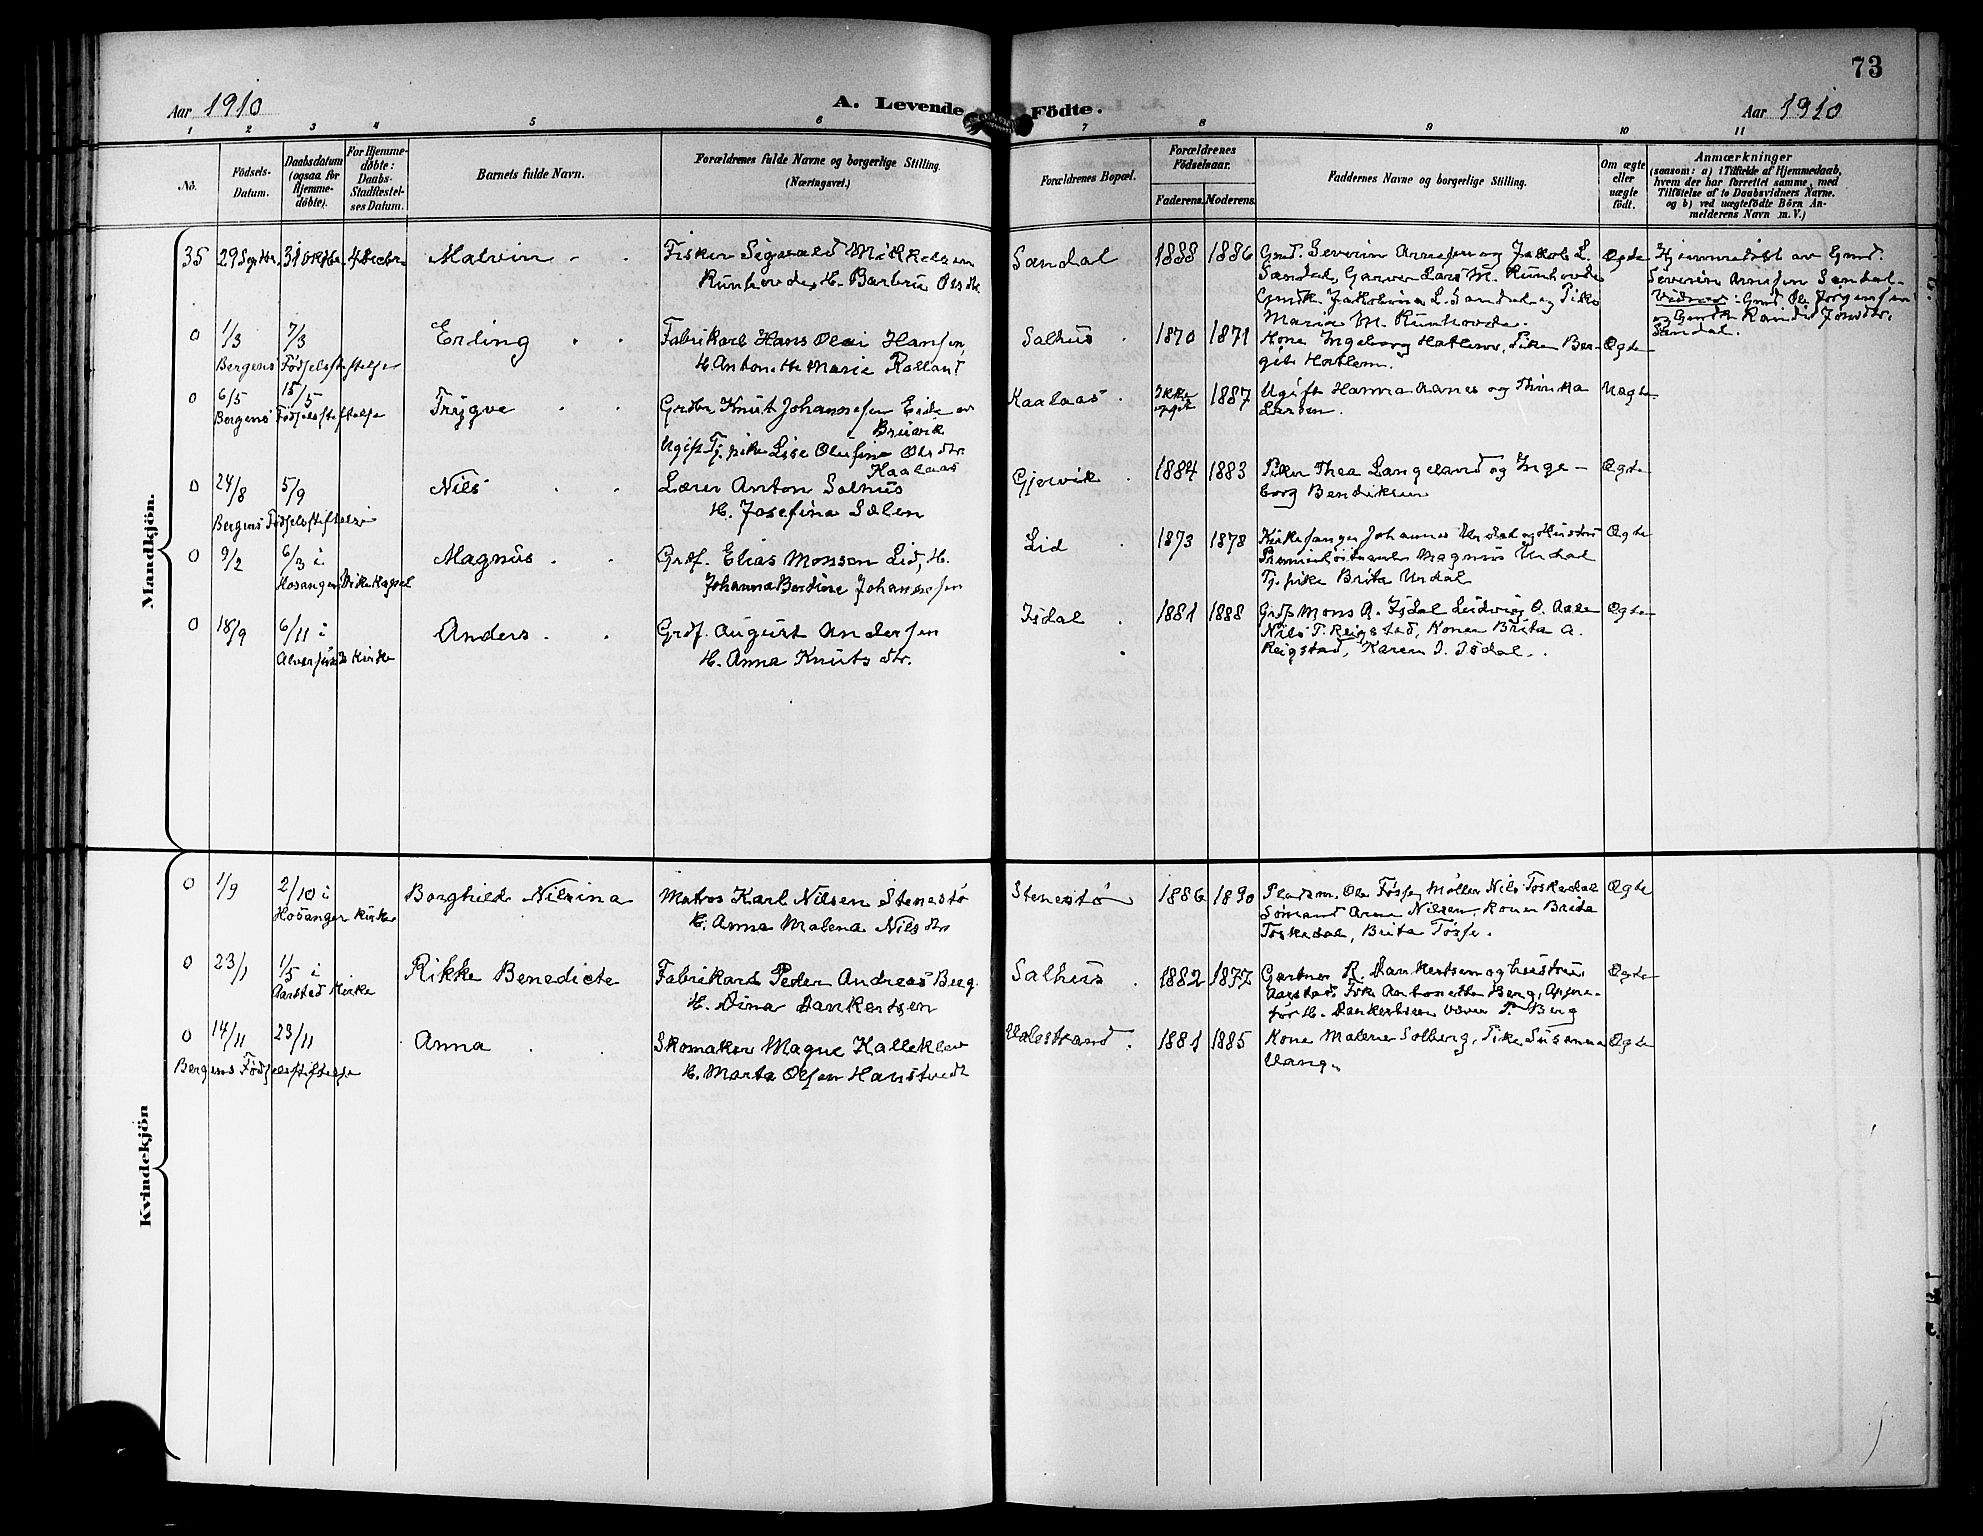 73
Aar 1910
A. Levende Födte.
Aar 1910
1 2 3 4 5 6 7 8 9 10 11
No.
Födsels-Datum.
Daabsdatum (ogsaa for Hjemme-döbte).
For Hjemme-döbte: Daabs-Stadfæstel-ses Datum.
Barnets fulde Navn.
Forældrenes fulde Navne og borgerlige Stilling. (Næringsvei.)
Forældrenes Bopæl.
Forældrenes Födselsaar.
Faderens. Moderens.
Faddernes Navne og borgerlige Stilling.
Om ægte eller uægte födt.
Anmærkninger
(saasom: a) i Tilfælde af Hjemmedaab,
hvem der har forrettet samme, med
Tilföielse af to Daabsvidners Navne,
og b) ved uægtefödte Börn An-
melderens Navn m. V.)
Mandkjön.
35 29 Septbr. 31 Oktbr. 4 Decbr. Malvin
Fisker Sigvald Mikkelsen
Runhovde, H. Barbra Olsdtr.
Sandal 1888 1886
Gmd. Severin Arnesen og Jakob L.
Sandal, Garver Lars M. Runhovde
Gmdk. Jakobina L. Sandal og Pike
Maria M. Runhovde.
Ægte
Hjemmedöbt av Gmd.
Severin Arnesen Sandal.
Vidner: Gmd. Ole Jörgensen
og Gmdk. Randi Jonsdtr.
Sandal.
0 1/3 7/3 Erling
Bergens Födselsstiftelse
Fabrikarb. Hans Olai Hansen
H. Antonette Marie Rolland
Salhus 1870 1871
Kone Ingeborg Hatlem, Pike Ber-
git Hatlem.
Ægte
0 6/5 15/5 Trygve
Bergens Födselsstiftelse
Grdbr. Knut Johannesen Eide av
Bruvik
Ugift Tj. pike Lise Olufine Olsdtr.
Kaalaas
Kaalaas Ikke opgit 1887
Ugift Hanna Aanes og Thinka
Larsen.
Uægte
0 24/8 5/9 Nils
Bergens Födselsstiftelse
Lærer Anton Salhus
H. Josefina Sælen
Gjervik 1884 1883
Piker Thea Langeland og Inge-
borg Bendiksen
Ægte
0 9/2 6/3 i Magnus
Hosanger Kirke
Grdf. Elias Monsen Lid, H.
Johanna Berdine Johannesen
Lid 1873 1878
Kirkesanger Johannes Undal og Hustru
Premierlöitnant Magnus Undal
Tj. pike Brita Undal
Ægte
0 18/9 6/11 i Anders
Alversund Kirke
Grdf. August Andersen
H. Anna Knutsdtr.
Isdal 1881 1888
Grdf. Mons A. Isdal Ludvig O.
Nils T. Reigstad, Koner Brita A.
Reigstad, Karen I. Isdal.
Ægte
Kvindekjön
0 1/9 2/10 i Borghild Nilsina
Hosanger Kirke
Matros Karl Nilsen Stenestö
H. Anna Malena Nilsdtr.
Stenestö 1886 1890
Pladsm. Ole Tösse, Möller Nils Toskedal
Sömand Arne Nilsen, Koner Brita
Toskedal, Brita Tösse.
Ægte
0 23/1 1/5 i Rikke Benedicte
Aarstad Kirke
Fabrikarb. Peder Andreas Berg
H. Dina Dankertsen
Salhus 1882 1877
Gartner R. Dankertsen og hustru
Aarstad. Frk. Antonette Berg,
H. Dankertsen Væver P. Berg
Ægte
0 14/11 23/11 Anna
Bergens Födselsstiftelse
Skomaker Magne Kalleklev
H. Marta Olsen Hanstvedt
Valestrand 1881 1885
Kone Malene Solberg, Pike Susanna
Vang.
Ægte